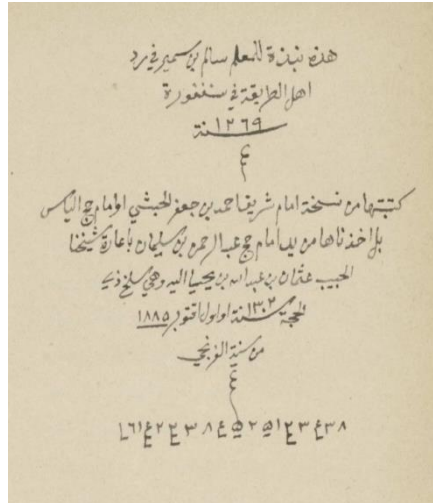 هذه نبذة للمعلم سالم بن سمير في رد
اهل الطريقة في سنغفورة
سنة ١٢٦٩
كتبتها من نسخة امام شريف احمد بن جعفر الحبشي او امام حج الياس
بل اخذناها من يد امام حج عبد الرحمن بن سليمان باعارة شيخنا
الحبيب عثمان بن عبد الله بن يحيى اليه وهي سلخ ذي
الحجة سنة ١٣٠٢ او اول اقتوبر ١٨٨٥
من سنة الفرنجي